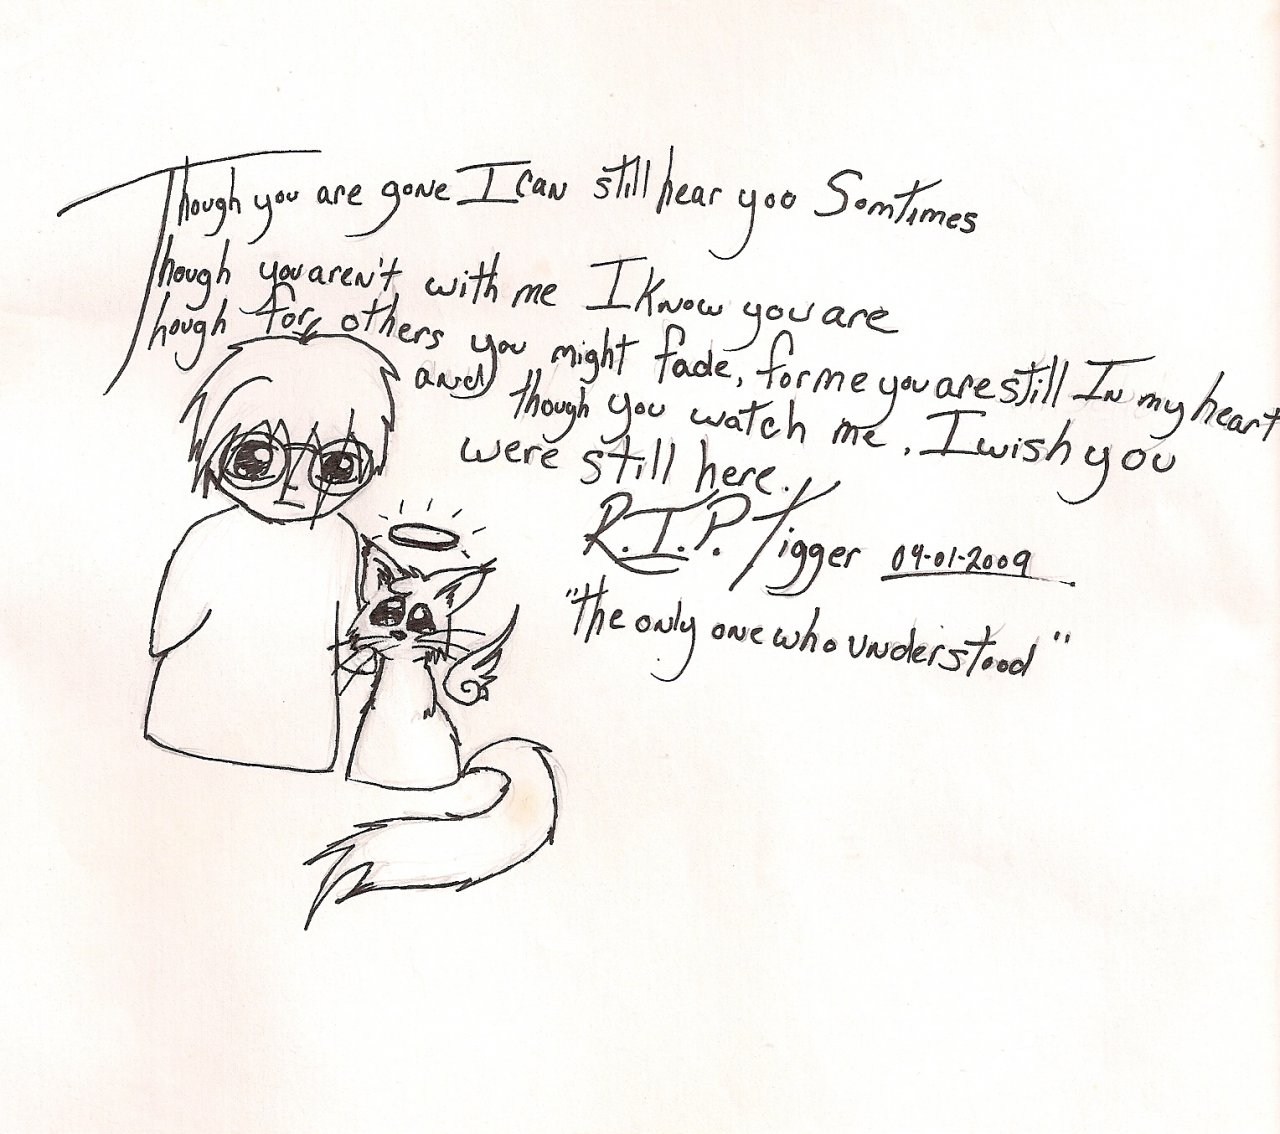 Though you are gone I can still hear you Somtimes
Though you aren't with me I know you are
Though for others you might fade, for me you are still In my heart
and though you watch me, I wish you
were still here.
R.I.P. Tigger 04-01-2009
"the only one who understood"